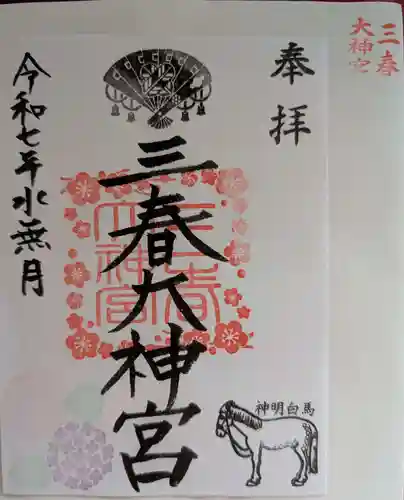 三春
大神宮
奉拝
三春大神宮
三春
大神宮
令和七年水無月
神明白馬